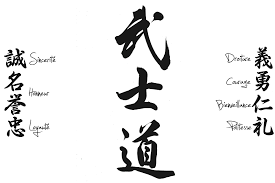 誠名誉忠
Sincérité
Honneur
Loyauté
武士道
Droiture
Courage
Bienveillance
Politesse
義勇仁礼